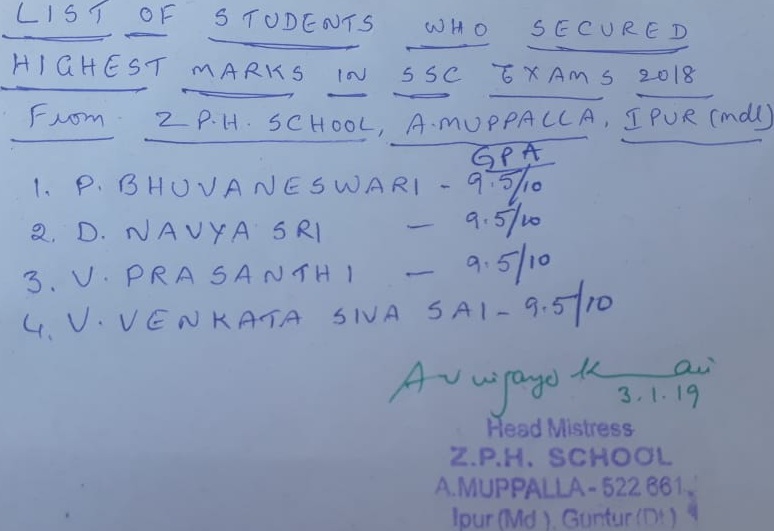 LIST OF STUDENTS WHO SECURED
HIGHEST MARKS IN SSC EXAMS 2018
From Z.P.H. SCHOOL, A.MUPPALLA, IPUR (mdl)
GPA
1. P. BHUVANESWARI - 9.5/10
2. D. NAVYA SRI - 9.5/10
3. V. PRASANTHI - 9.5/10
4. V. VENKATA SIVA SAI - 9.5/10
3.1.19
Head Mistress
Z.P.H. SCHOOL
A.MUPPALLA - 522 661.
Ipur (Md), Guntur (Dt)